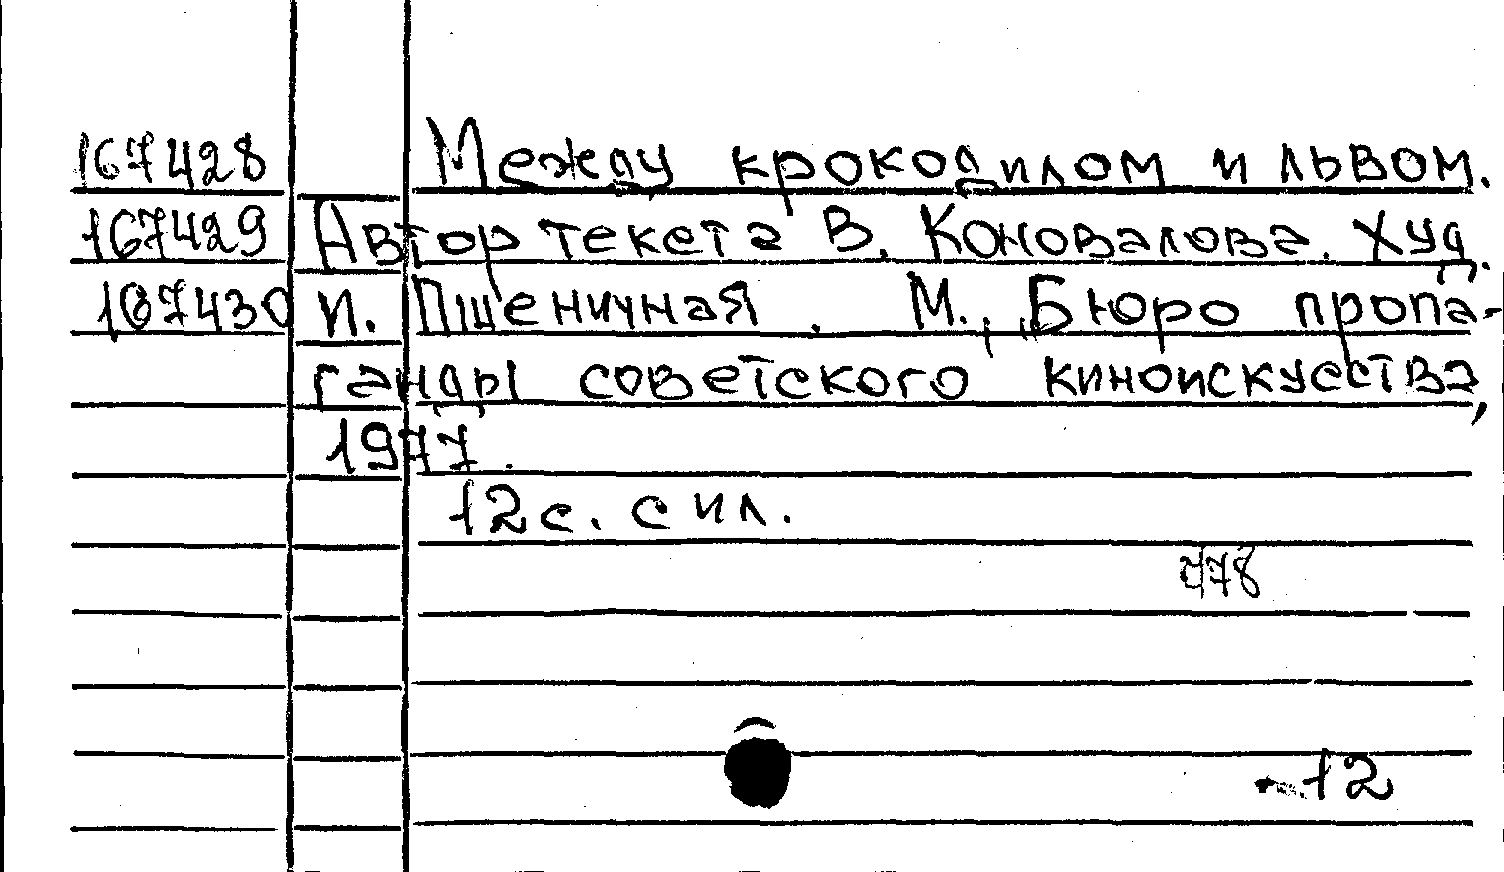 167428 Между крокодилом и львом.
167429 Автор текста В. Коновалова. Худ.
167430 И. Пшеничная. М., „Бюро пропа-
ганды советского киноискусства,
1977.
12 с. с ил.
778
12